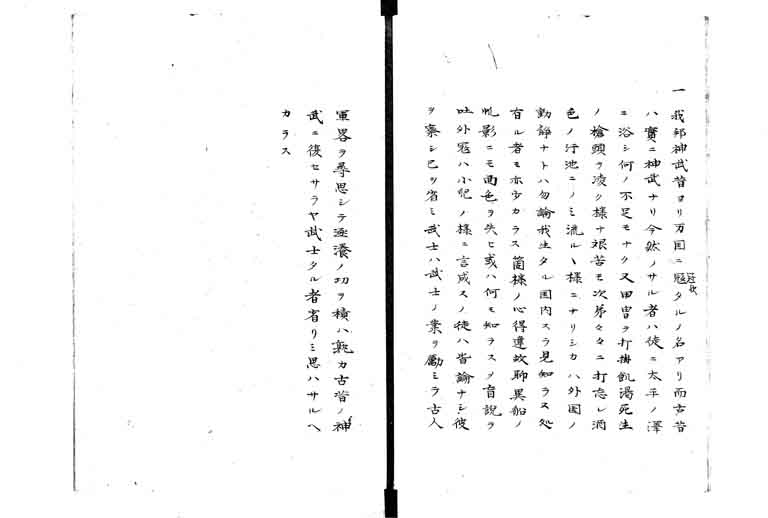 一 我邦神武昔ヨリ万国ニ冠タルノ名アリ而古昔
ハ實ニ神武ナリ今然ノサル者ハ徒ニ太平ノ澤
ニ浴シ何ノ不足モナク又甲冑ヲ打掛飢渇死生
ノ槍頭ヲ凌ク様ナ艱苦モ次第々々ニ打忘レ酒
色ノ汚池ニノミ流ルヽ様ニナリシカハ外国ノ
動静ナトハ勿論我生タル国内スラ見知ラス処
有ル者モ亦少カラス箇様ノ心得違故聊異船ノ
帆影ニモ面色ヲ失ヒ或ハ何モ知ラスメ盲説ヲ
吐外冦ハ小児ノ様ニ言成スノ徒ハ皆論ナシ彼
ヲ棄シ己ヲ省ミ武士ハ武士ノ業ヲ勵ミラ古人
軍畧ヲ尋思シテ逐漸ノ功ヲ積ハ孰カ古昔ノ神
武ニ復セサラヤ武士タル者省リミ思ハサルヘ
カラス